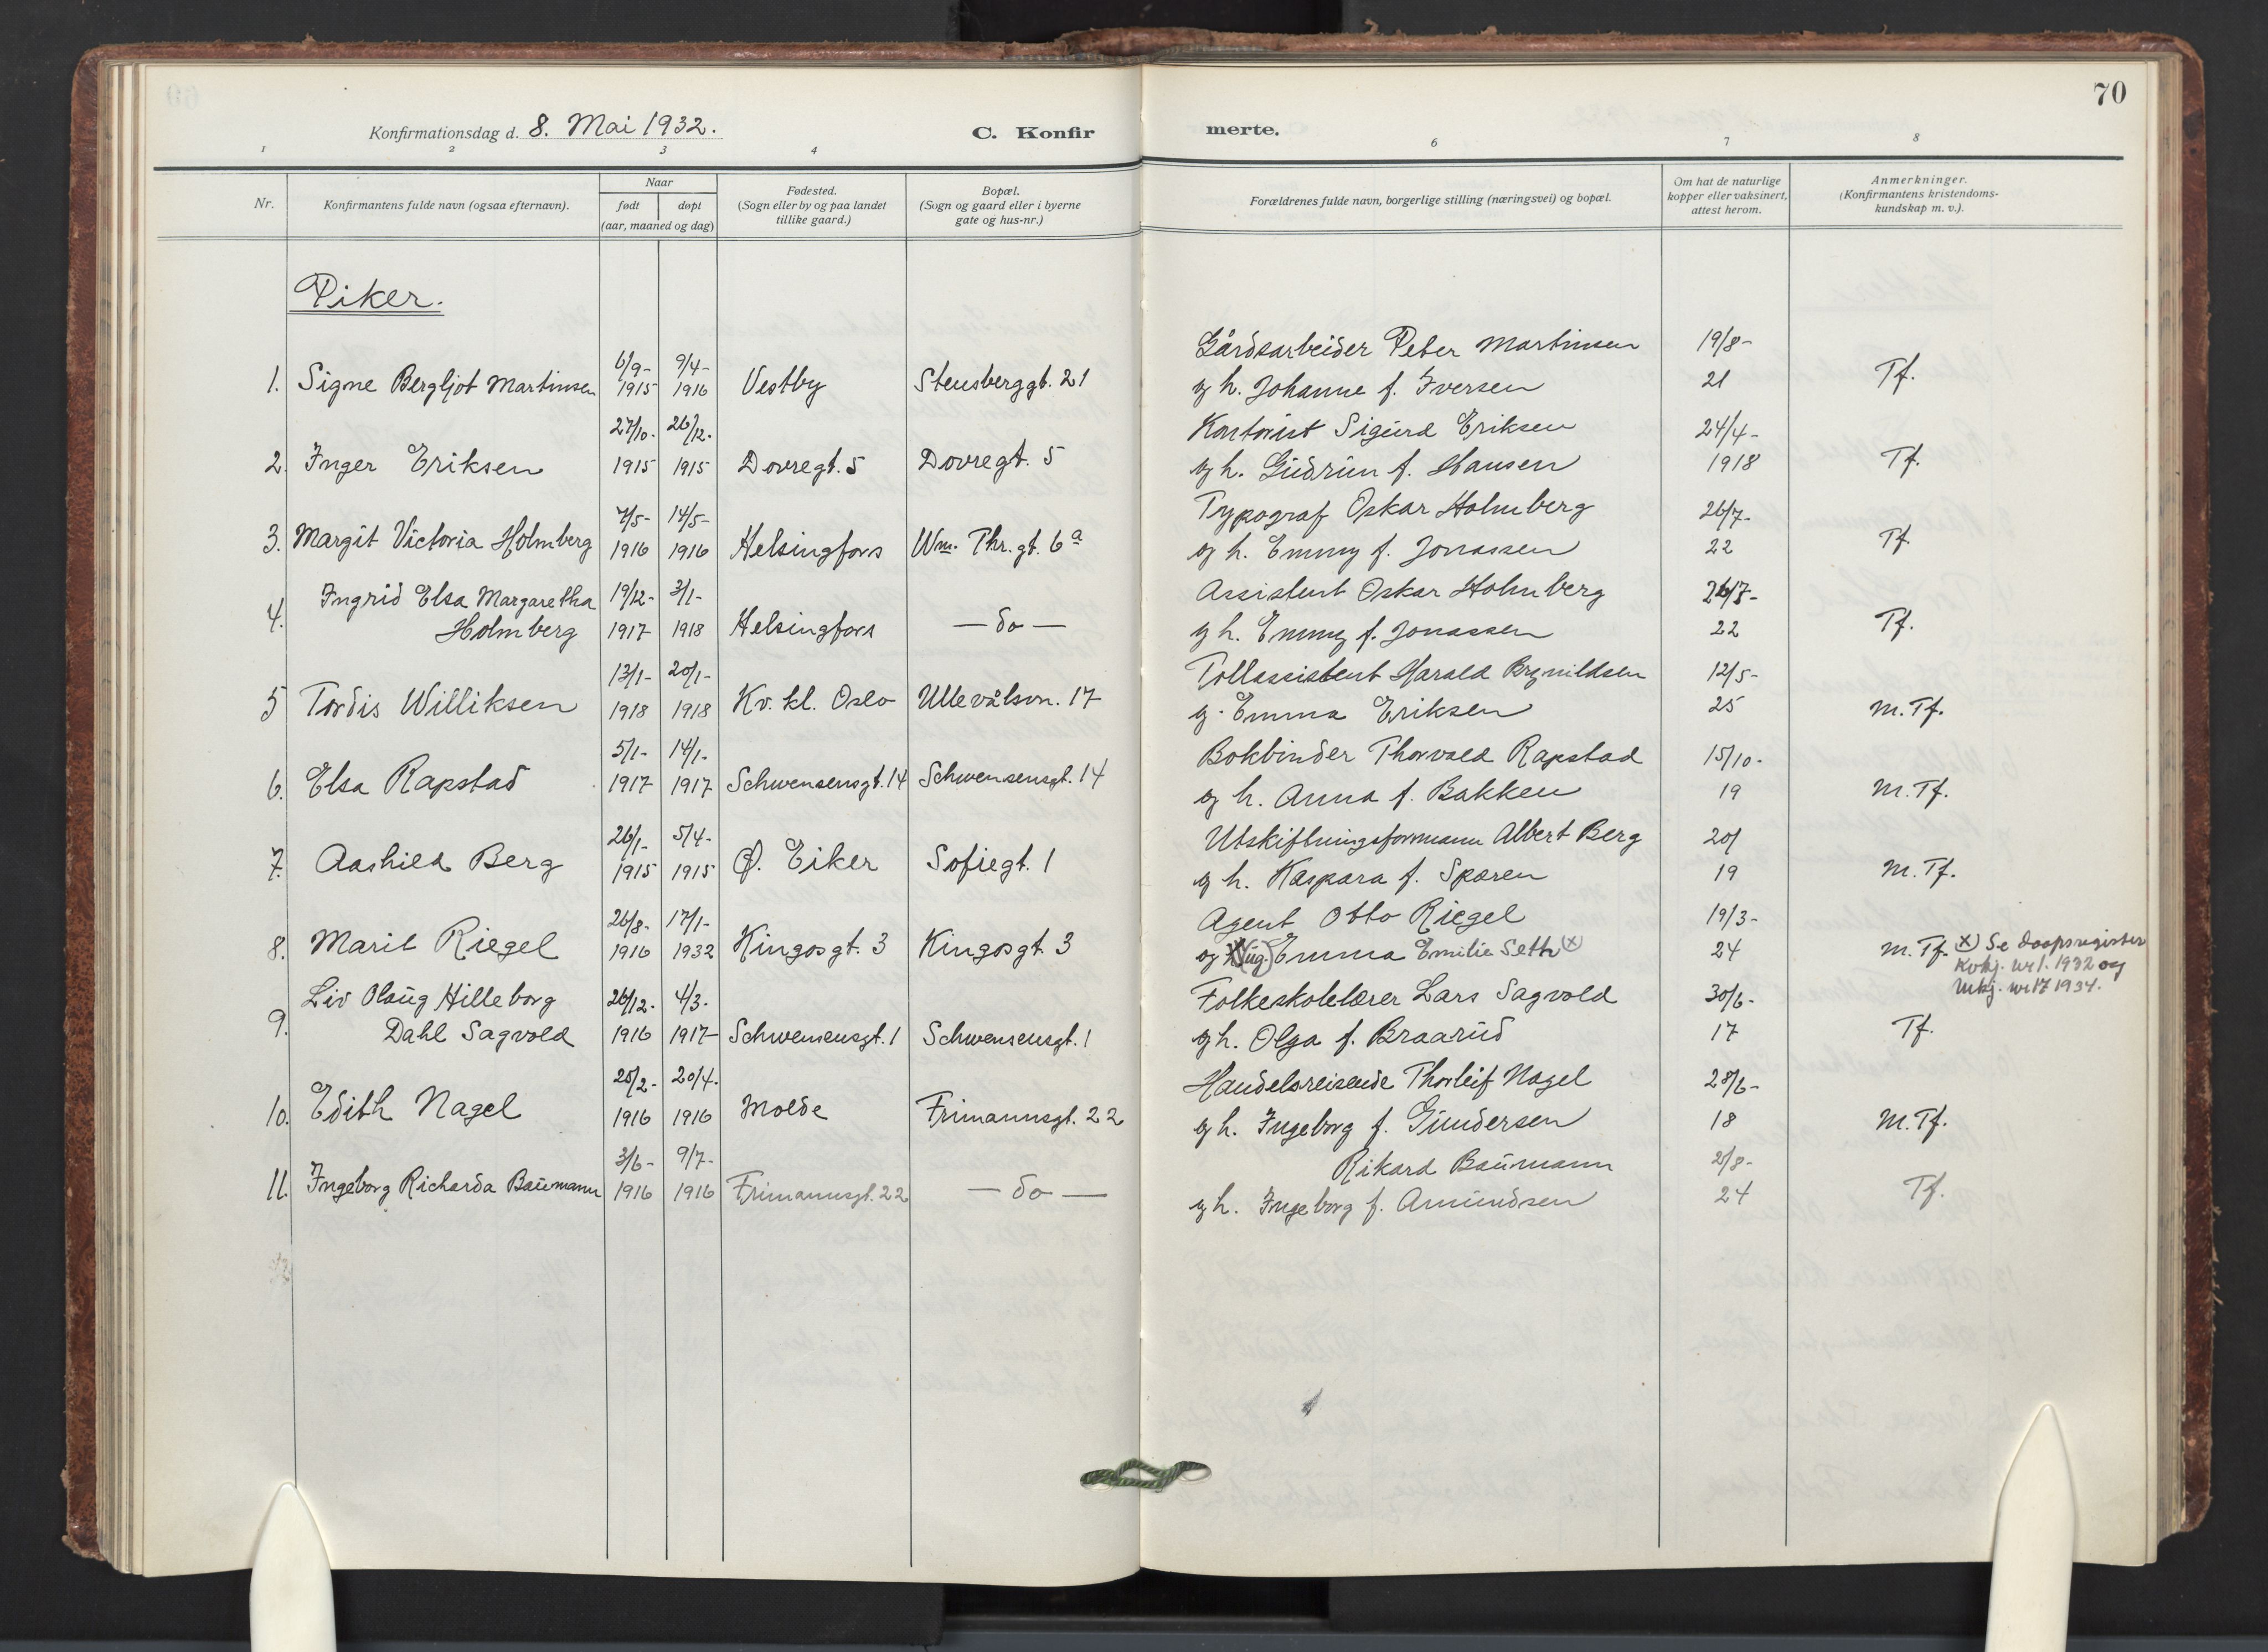 70
Konfirmationsdag d. 8. Mai 1932.
C. Konfirmerte.
1 2 3 4 6 7 8
Nr.
Konfirmantens fulde navn (ogsaa efternavn).
Naar
født døpt
(aar, maaned og dag)
Fødested.
(Sogn eller by og paa landet
tillike gaard.)
Bopæl.
(Sogn og gaard eller i byerne
gate og hus-nr.)
Forældrenes fulde navn, borgerlige stilling (næringsvei) og bopæl.
Om hat de naturlige
kopper eller vaksinert,
attest herom.
Anmerkninger.
(Konfirmantens kristendoms-
kundskap m. v.).
Piker.
6/9- 9/4- Gårdsarbeider Peter Martinsen 19/8-
1. Signe Bergljot Martinsen 1915 1916 Vestby Stensberggt. 21 og h. Johanne f. Iversen 21 Tf.
27/10. 26/12. Kontorist Sigurd Eriksen 24/4-
2. Inger Eriksen 1915 1915 Dovregt. 5 Dovregt. 5 og h. Gudrun f. Hansen 1918 Tf.
7/5- 14/5- Typograf Oskar Holmberg 26/7-
3. Margit Victoria Holmberg 1916 1916 Helsingfors Wm. Thr. gt. 6a og h. Emmy f. Jonassen 22 Tf
Ingrid Elsa Margaretha 19/12- 3/1- Assistent Oskar Holmberg 26/7-
4. Holmberg 1917 1918 Helsingfors — do — og h. Emmy f. Jonassen 22 Tf.
13/1- 20/1- Tollassistent Harald Brynildsen 12/5-
5 Tordis Williksen 1918 1918 Kv. kl. Oslo Ullevålsvn. 17 og Emma Eriksen 25 M. Tf.
5/1- 14/1- Bokbinder Thorvald Rapstad 15/10-
6. Elsa Rapstad 1917 1917 Schwensensgt. 14 Schwensensgt. 14 og h. Anna f. Bakken 19 M. Tf.
26/1- 5/4- Utskiftningsformann Albert Berg 20/
7. Aashild Berg 1915 1915 Ø. Eiker Sofiegt. 1 og h. Kaspara f. Sparen 19 M. Tf.
26/8- 17/1- Agent Otto Riegel 19/3-
8. Marit Riegel 1916 1932 Kingosgt. 3 Kingosgt. 3 og (ug.) Emma Emilie Seth (x) 24 M. Tf. (x) Se daapsregister
Kvkj. nr 1. 1932 og
Ukj. nr 17 1934.
Liv Olaug Hilleborg 26/12- 4/3- Folkeskolelærer Lars Sagvold 30/6-
9. Dahl Sagvold 1916 1917 Schwensensgt. 1 Schwensensgt. 1 og h. Olga f. Braarud 17 Tf.
25/2- 20/4- Handelsreisende Thorleif Nagel 28/6-
10. Edith Nagel 1916 1916 Molde Frimannsgt. 22 og h. Ingeborg f. Gundersen 18 M. Tf.
3/6- 9/7- Rikard Baumann 2/8-
11. Ingeborg Richarda Baumann 1916 1916 Frimannsgt. 22 — do — og h. Ingeborg f. Amundsen 24 Tf.